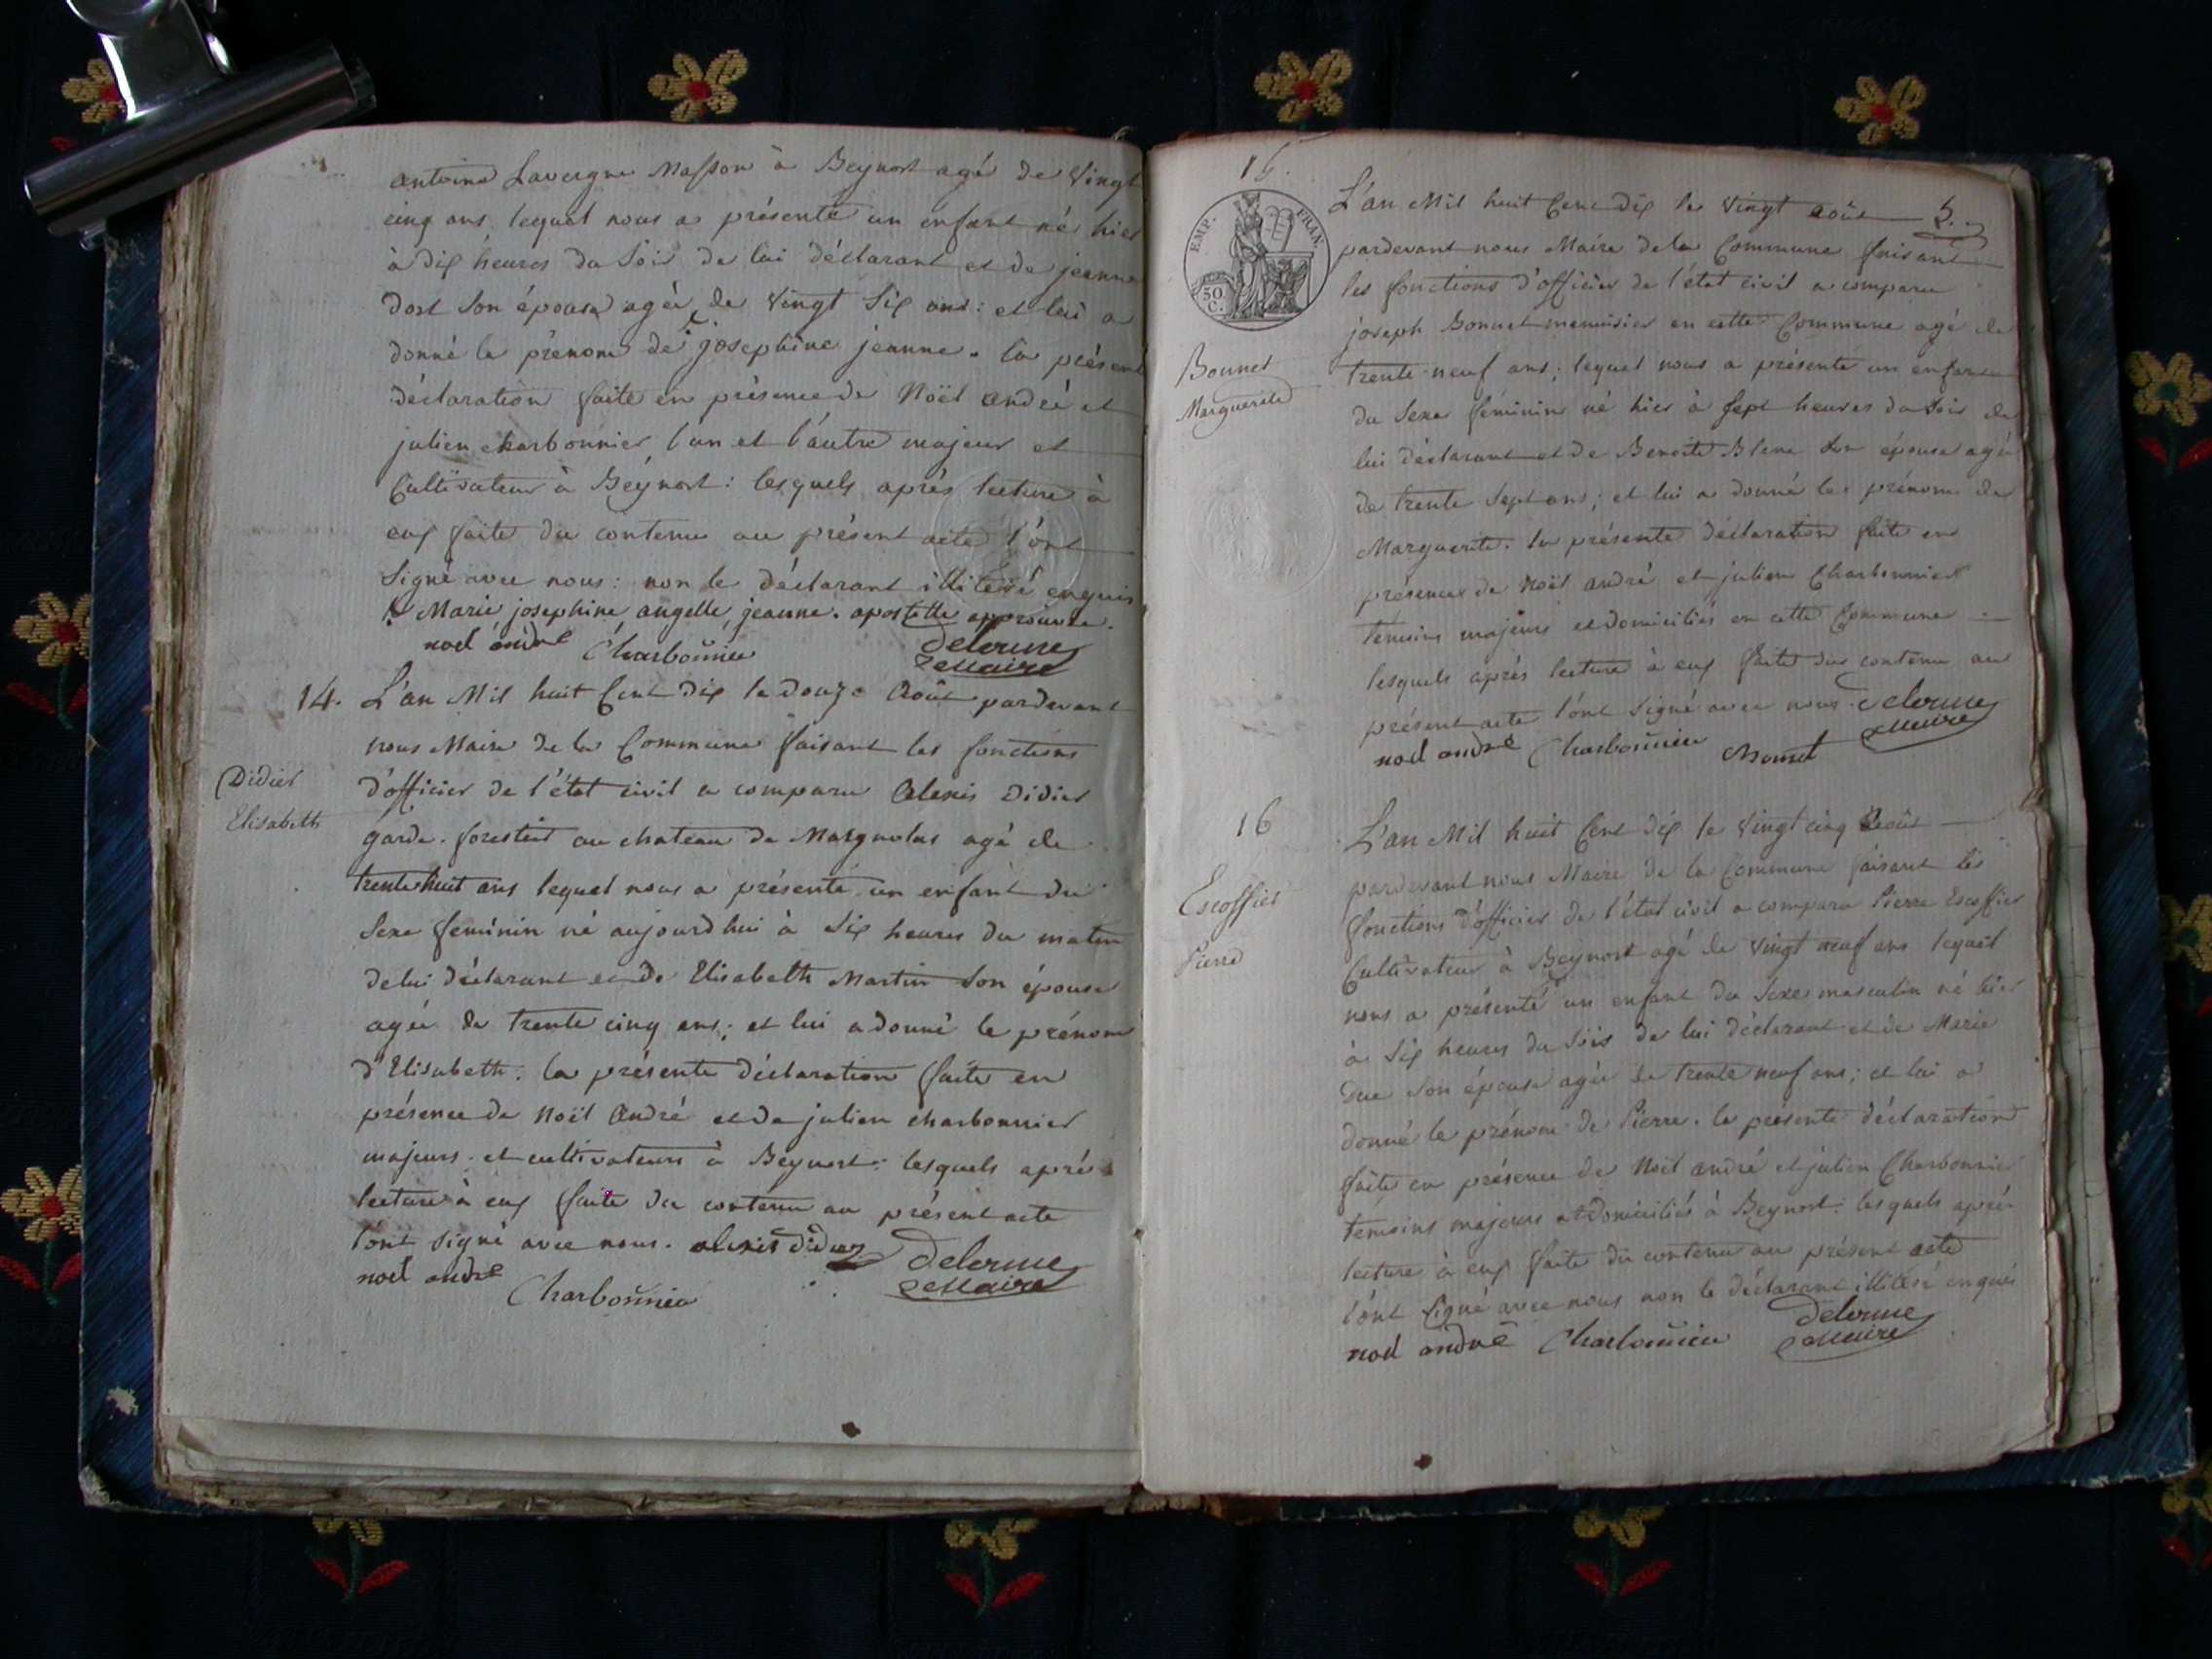 antoine Lavergne Masson à Beynost agé de Vingt
cinq ans lequel nous a présenté un enfant né hier
à dix heures du Soir de lui déclarant et de jeanne
dost Son épouse agée de Vingt Six ans : et lui a
donné le prénom de josephine jeanne. la présente
déclaration faite en présence de Noël andré et
julien charbonnier l'un et l'autre majeur et
Cultivateur à Beynost : lesquels après lecture à
eux faite du contenu au présent acte l'ont
Signé avec nous : non le déclarant illitéré enquis
Marie josephine angelle, jeanne. apostille approuvée.
noel andré Charbonnier delorme
Maire
14. L'an Mil huit Cent dix le douze Août pardevant
nous Maire de la Commune faisant les fonctions
Didier
d'officier de l'état civil a comparu Alexis Didier
Elisabeth
garde-forestier au chateau de Margnolas agé de
trente huit ans lequel nous a présenté un enfant du
Sexe féminin né aujourd'hui à Six heures du matin
de lui déclarant et de Elisabeth Martin Son épouse
agée de trente cinq ans ; et lui a donné le prénom
d'Elisabeth. la présente déclaration faite en
présence de Noël André et de julien charbonnier
majeurs et cultivateurs à Beynost : lesquels après
lecture à eux faite du contenu au présent acte
l'ont signé avec nous. alexis didier delorme
noel andré Maire
Charbonnier
15.
EMP. FRAN.
50
C.
L'an Mil huit Cent dix le Vingt août 5.
pardevant nous Maire de la Commune faisant
les fonctions d'officier de l'état civil a comparu
joseph Bonnet menuisier en cette Commune agé de
Bonnet
trente neuf ans ; lequel nous a présenté un enfant
Marguerite
du Sexe féminin né hier à Sept heures du Soir de
lui déclarant et de Benoite Blanc Son épouse agée
de trente Sept ans ; et lui a donné le prénom de
Marguerite. la présente déclaration faite en
présence de Noël andré et julien Charbonnier
témoins majeurs et domiciliés en cette Commune
lesquels après lecture à eux faite du contenu au
présent acte l'ont Signé avec nous. delorme
Maire
noel andré Charbonnier
16
L'an Mil huit Cent dix le Vingt cinq Août
pardevant nous Maire de la Commune faisant les
Escoffier
fonctions d'officier de l'état civil a comparu Pierre Escoffier
Pierre
Cultivateur à Beynost agé de Vingt neuf ans lequel
nous a présenté un enfant du Sexe masculin né hier
à Six heures du Soir de lui déclarant et de Marie
Son épouse agée de trente neuf ans ; et lui a
donné le prénom de Pierre. la présente déclaration
faite en présence de Noël andré et julien Charbonnier
témoins majeurs et domiciliés à Beynost : lesquels après
lecture à eux faite du contenu au présent acte
l'ont Signé avec nous non le déclarant illitéré enquis
delorme
noel andré Charbonnier Maire